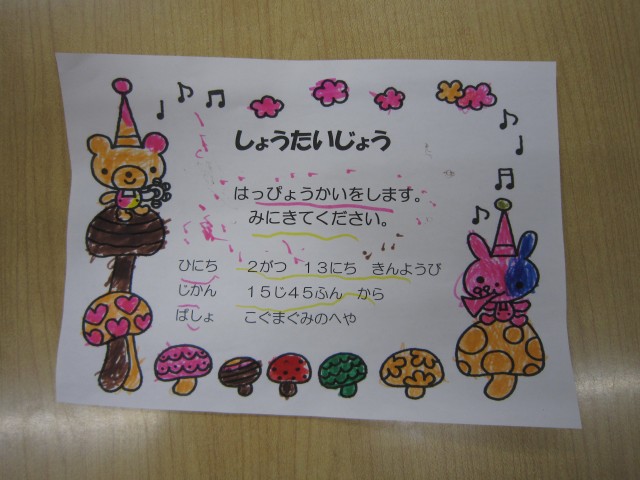 しょうたいじょう
はっぴょうかいをします。
みにきてください。
ひにち　２がつ　１３にち　きんようび
じかん　１５じ４５ふん　から
ばしょ　こぐまぐみのへや